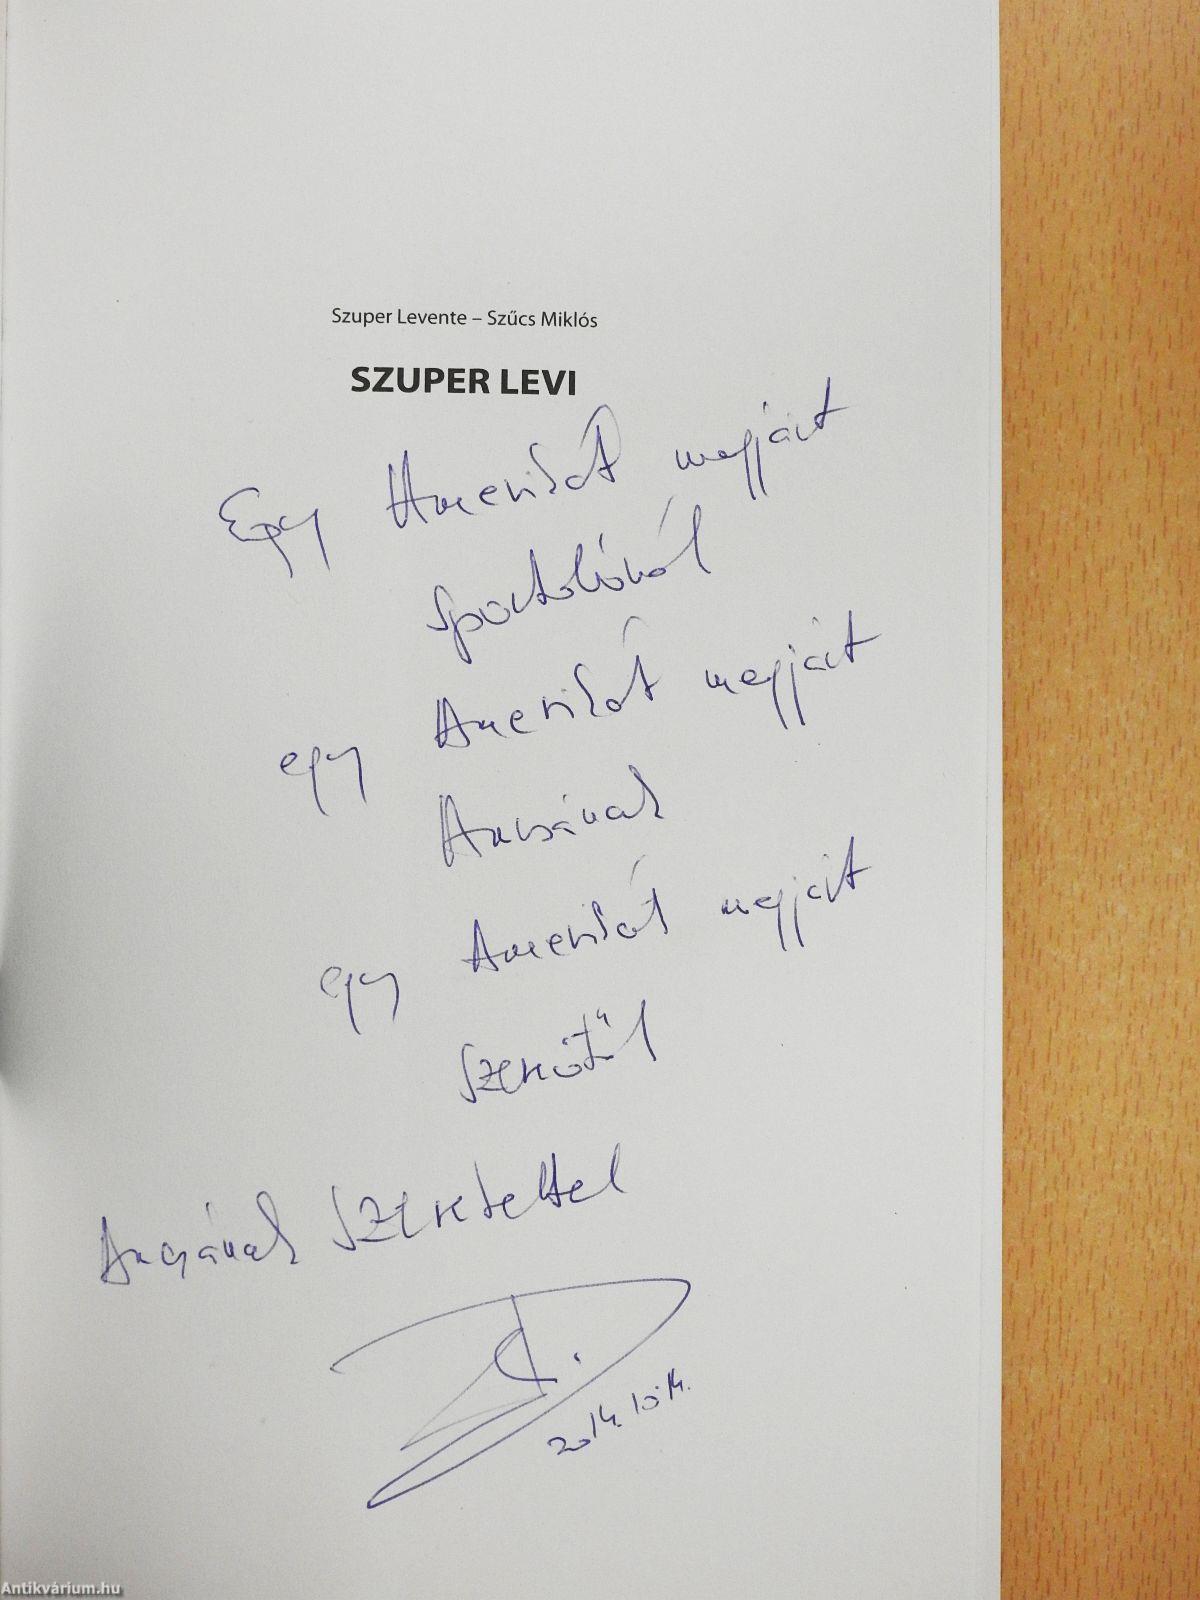 Szuper Levente – Szűcs Miklós
SZUPER LEVI
Egy Amerikát megjárt
sportolóról
egy Amerikát megjárt
Ancsának
egy Amerikát megjárt
szerzőtől
Ancsának szeretettel
2014. 10. 14.
Antikvárium.hu